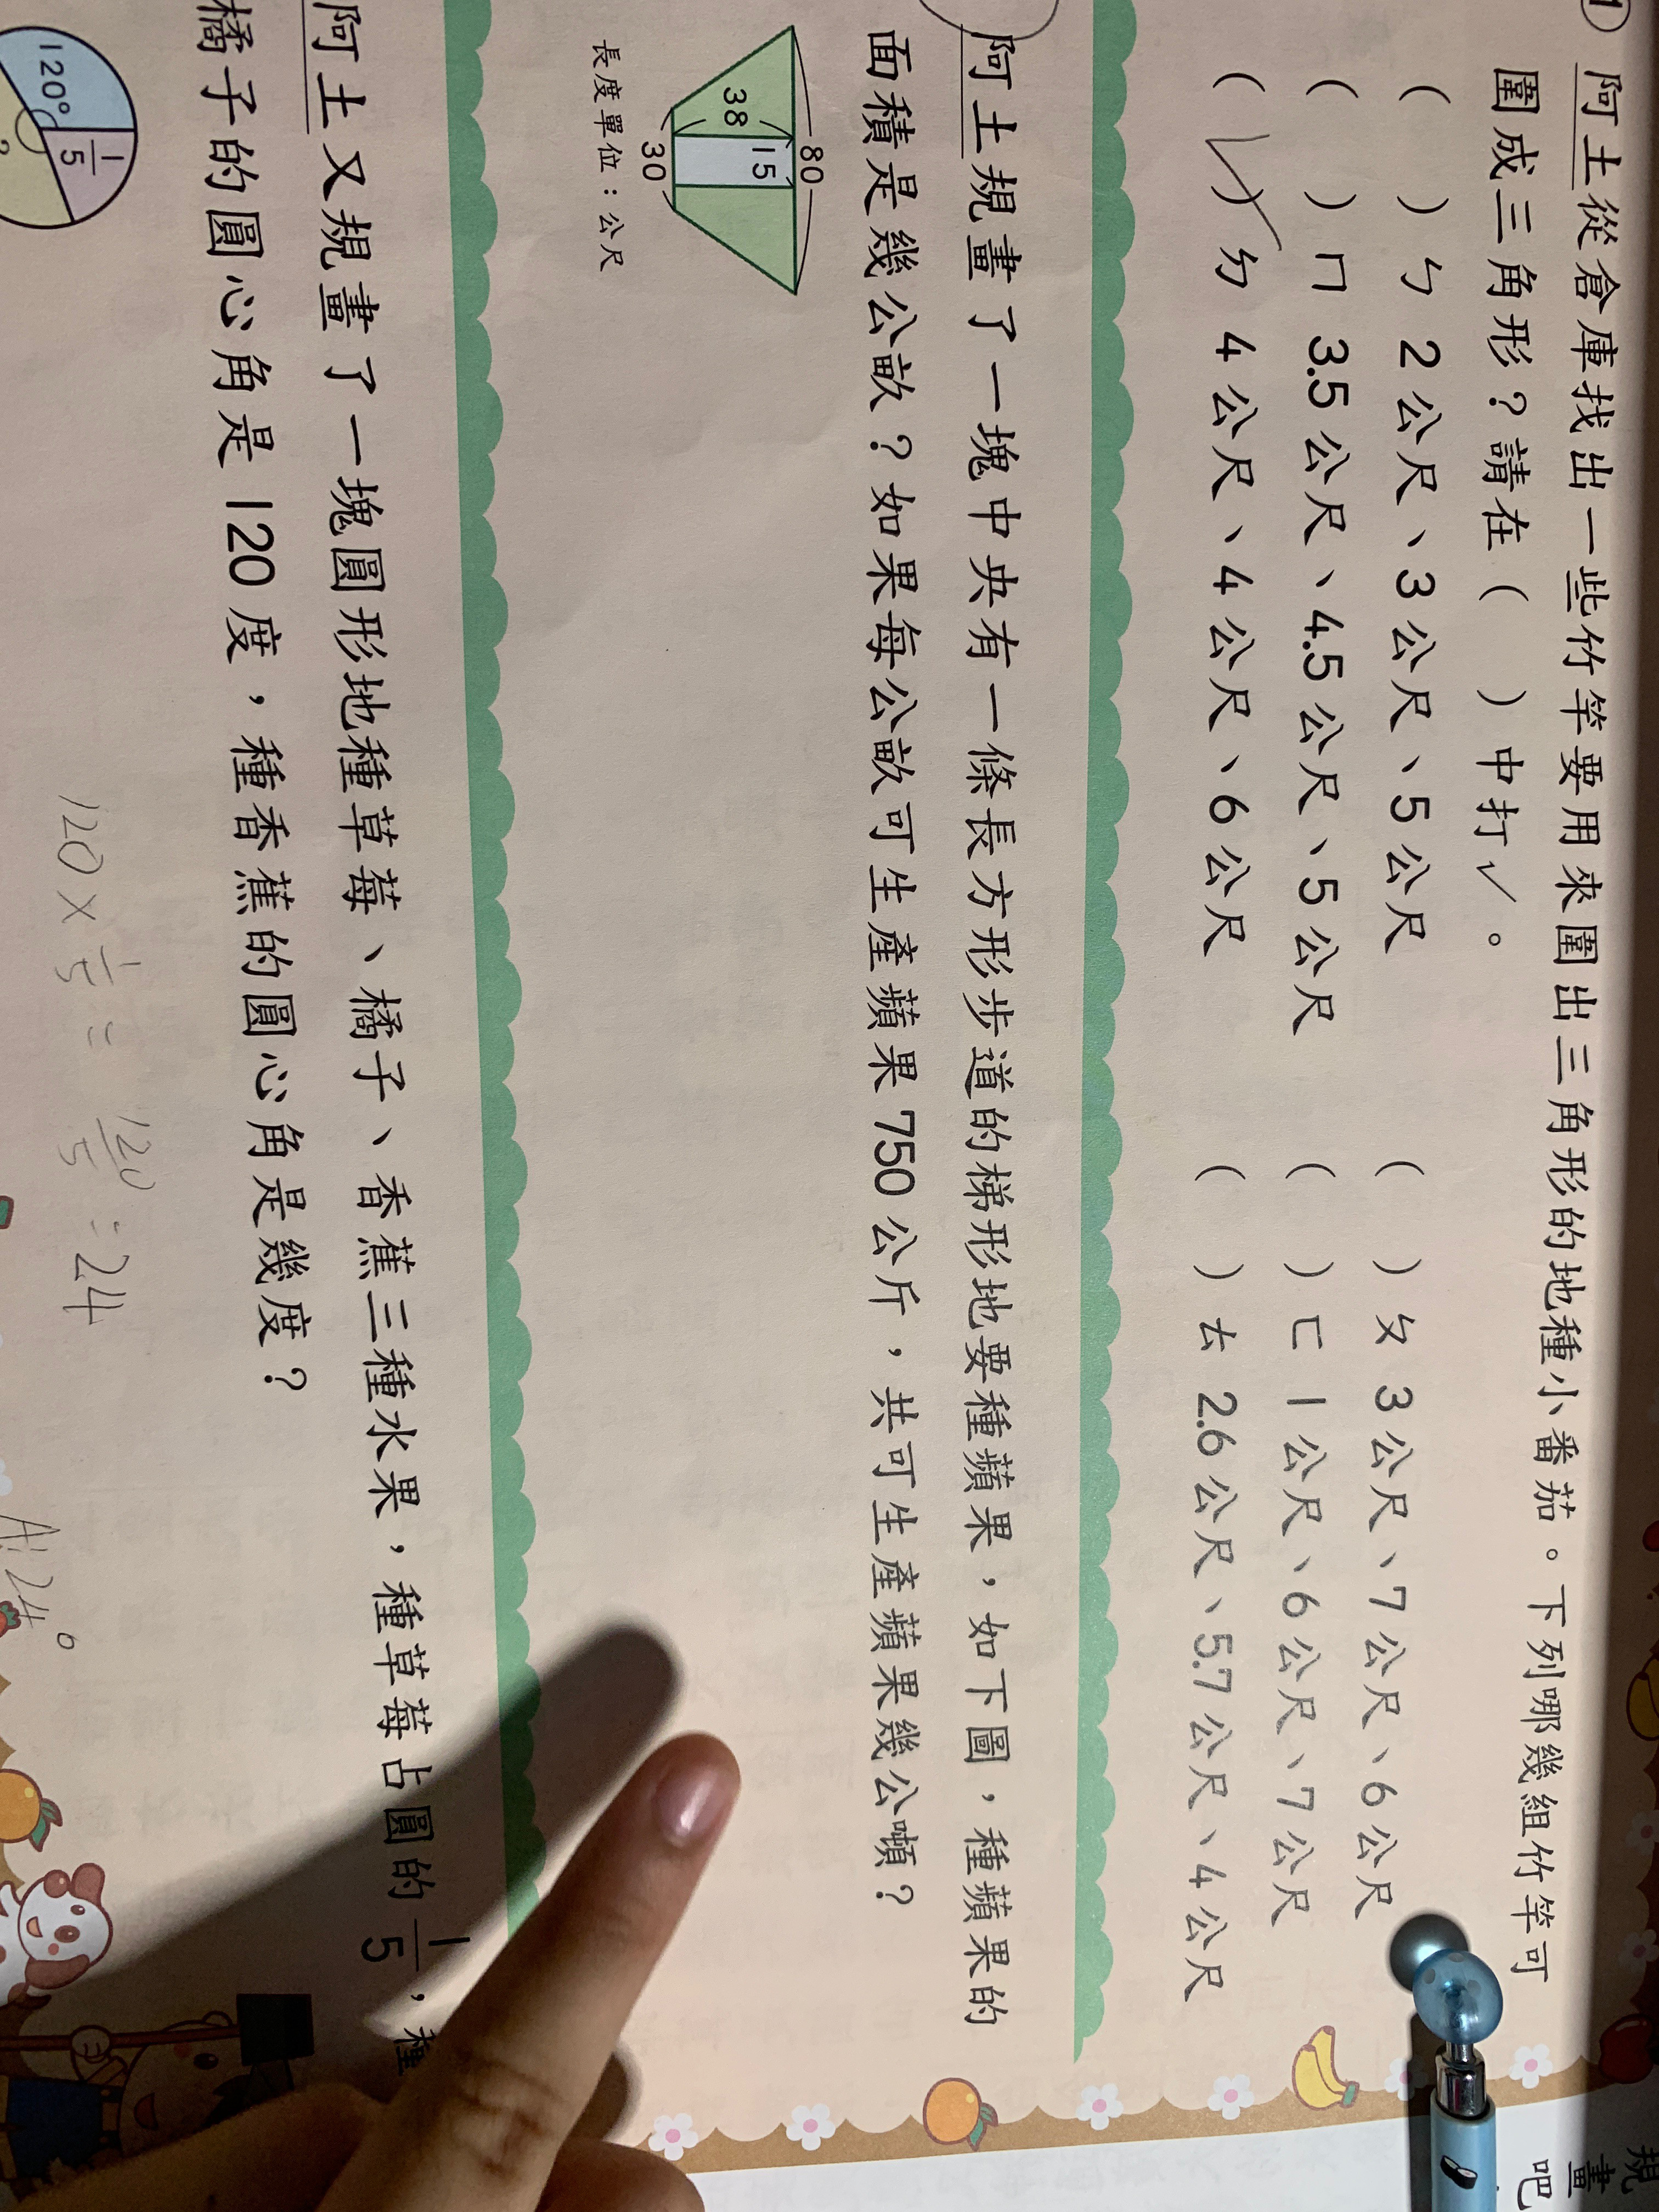 ① 阿土從倉庫找出一些竹竿要用來圍出三角形的地種小番茄。下列哪幾組竹竿可
圍成三角形？請在（ ）中打✓。
（ ）ㄅ 2公尺、3公尺、5公尺 （ ）ㄆ 3公尺、7公尺、6公尺
（ ）ㄇ 3.5公尺、4.5公尺、5公尺 （ ）ㄈ 1公尺、6公尺、7公尺
（✓）ㄉ 4公尺、4公尺、6公尺 （ ）ㄊ 2.6公尺、5.7公尺、4公尺
阿土規畫了一塊中央有一條長方形步道的梯形地要種蘋果，如下圖，種蘋果的
面積是幾公畝？如果每公畝可生產蘋果750公斤，共可生產蘋果幾公噸？
80
15
38
30
長度單位：公尺
阿土又規畫了一塊圓形地種草莓、橘子、香蕉三種水果，種草莓占圓的1/5，種
橘子的圓心角是120度，種香蕉的圓心角是幾度？
1/5
120°
?
120 × 1/5 = 120/5 = 24
A:24°
規畫
吧